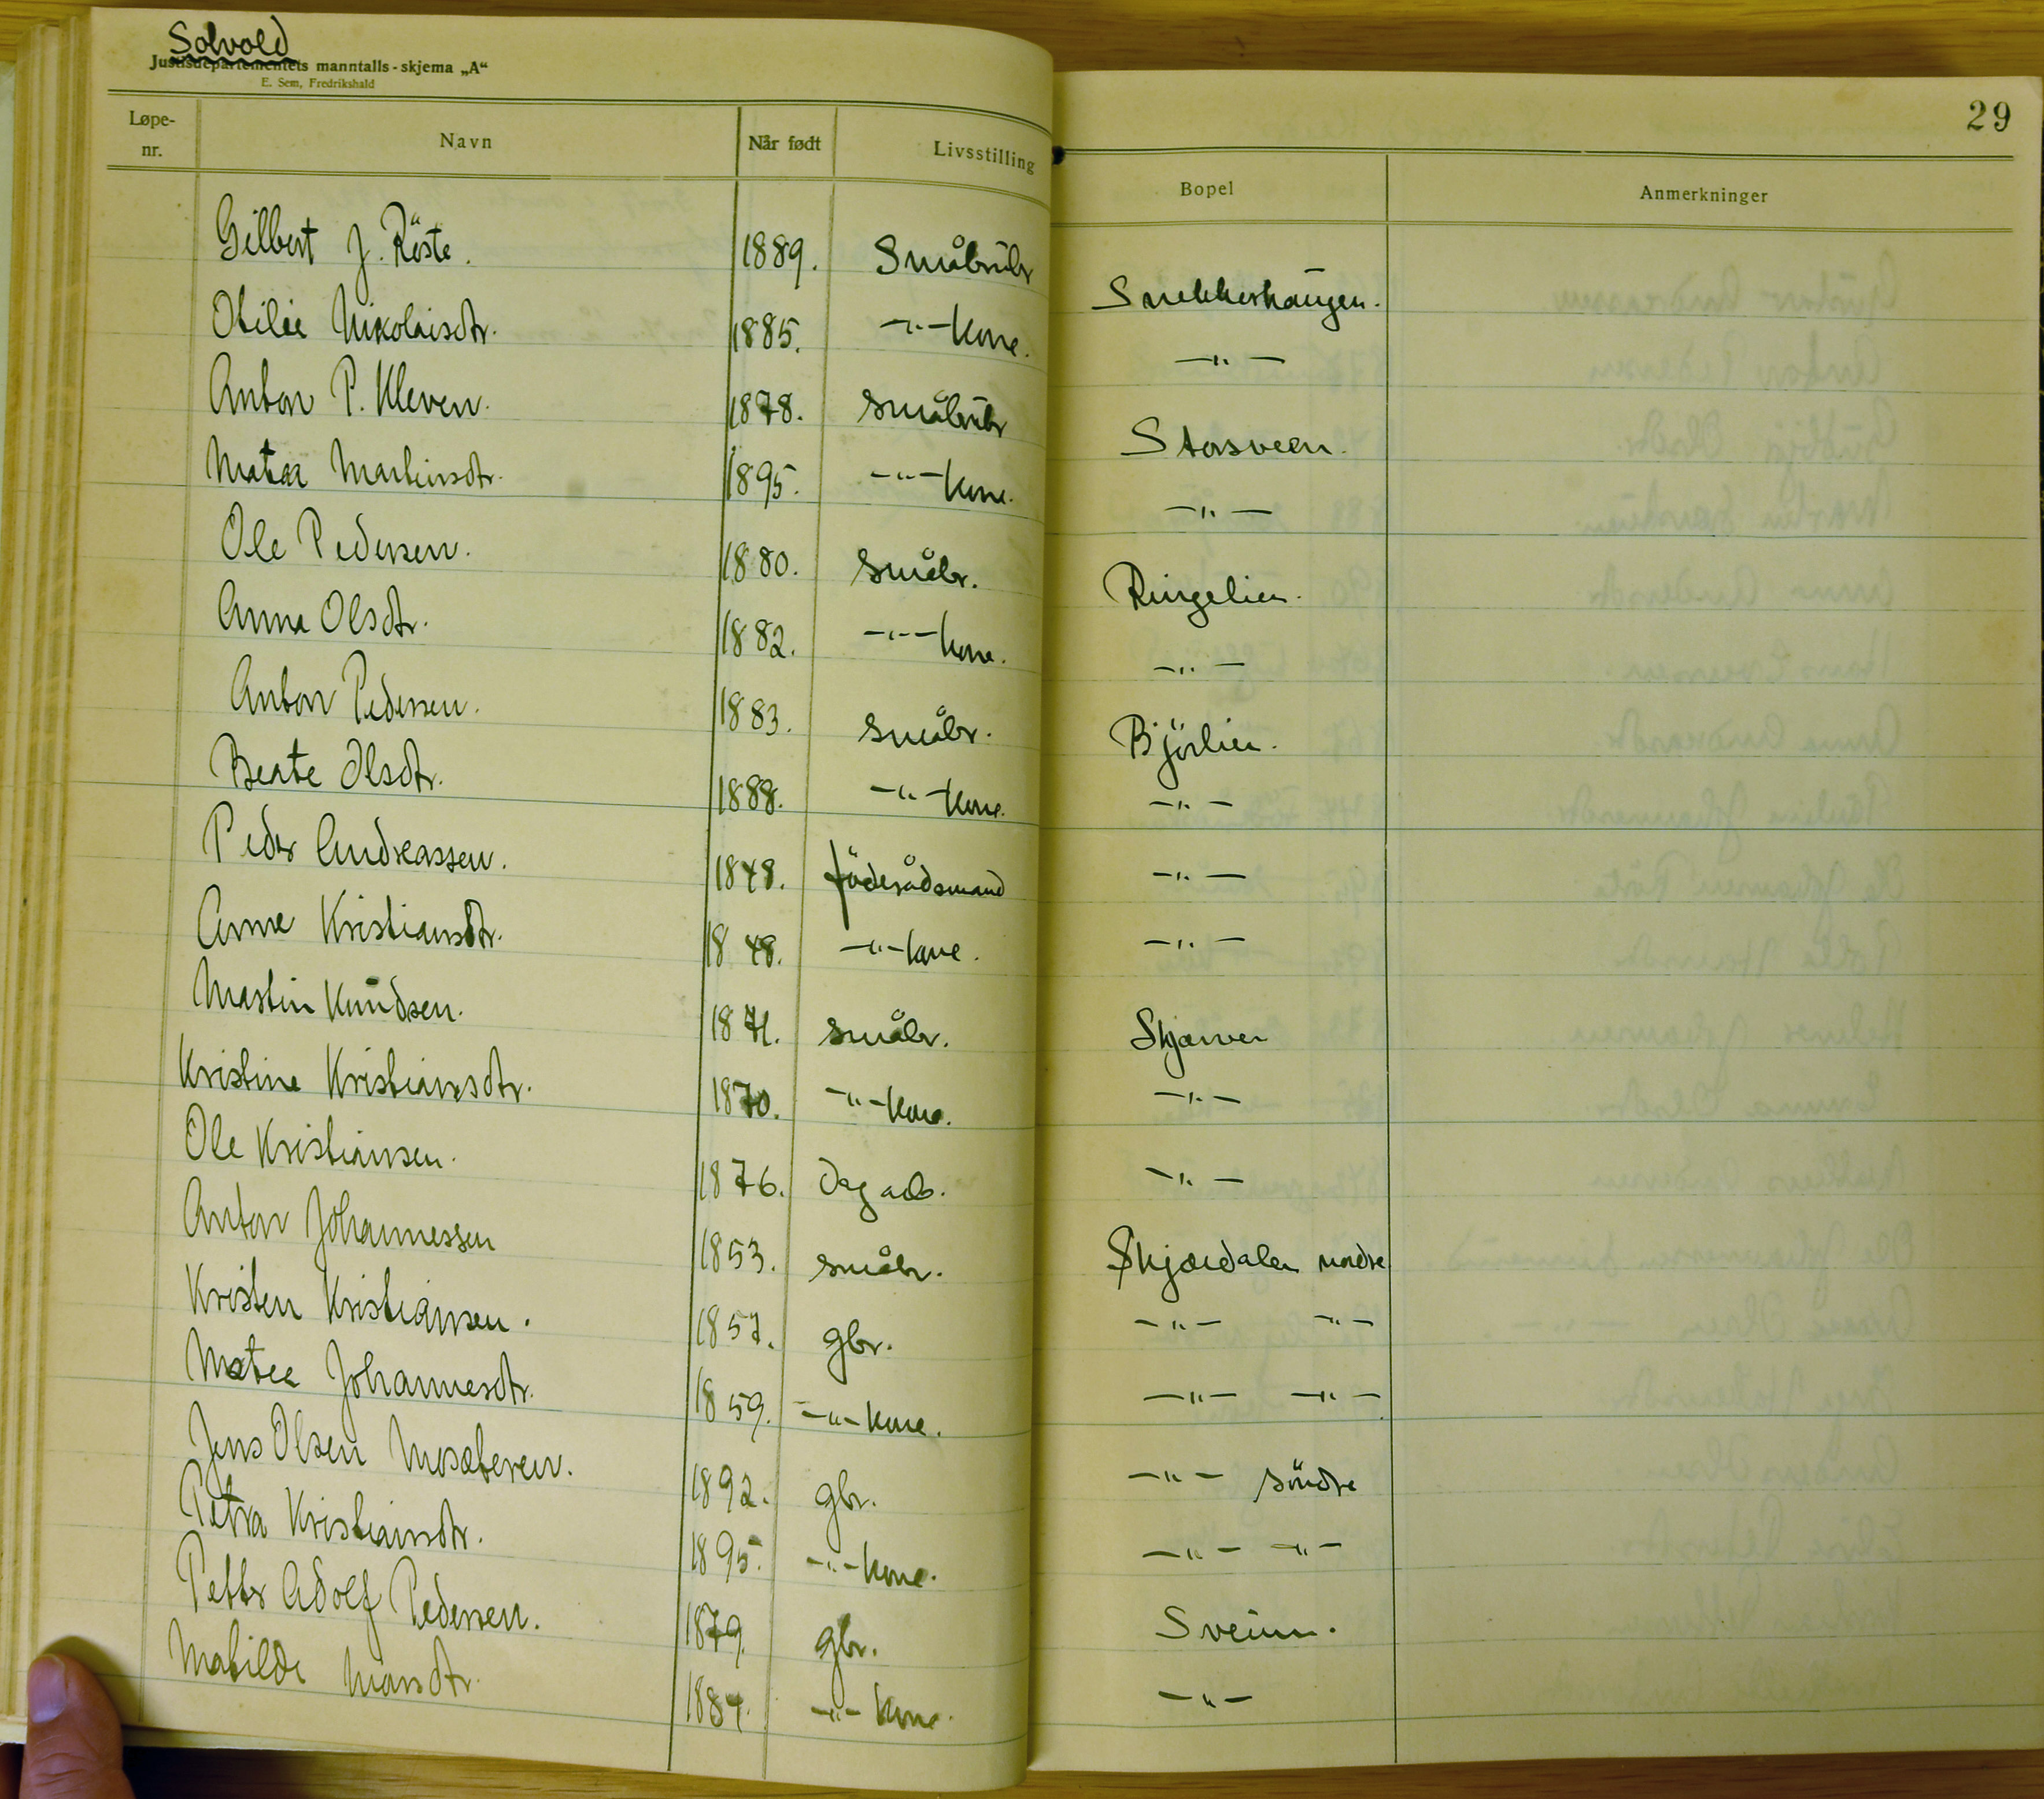 Solvold
Justisdepartementets manntalls-skjema „A“
E. Sem, Fredrikshald
29
Løpe-nr. Navn Når født Livsstilling Bopel Anmerkninger
Gilbert J. Röste. 1889. Småbrukr Snekkerhaugen.
Otilie Nikolaisdtr. 1885. -"- kone. -"-
Anton P. Kleven. 1878. småbrukr Storsveen.
Matea Martinsdtr. 1895. -"- kone. -"-
Ole Pedersen. 1880. småbr. Ringelien.
Anna Olsdtr. 1882. -"- kone. -"-
Anton Pedersen. 1883. småbr. Björlien.
Beate Olsdtr. 1888. -"- kone. -"-
Peder Andreassen. 1848. föderådsmand -"-
Anne Kristiansdtr. 1848. -"- kone. -"-
Martin Knudsen. 1871. småbr. Skjærven
Kristine Kristiansdtr. 1870. -"- kone. -"-
Ole Kristiansen. 1876. Dagarb. -"-
Anton Johannessen 1853. småbr. Skjærdalen nordre
Kristen Kristiansen. 1857. gbr. -"- -"-
Matea Johannesdtr. 1859. -"- kone. -"- -"-
Jens Olsen Mosæteren. 1892. gbr. -"- söndre
Petra Kristiansdtr. 1895. -"- kone. -"- -"-
Petter Adolf Pedersen. 1879. gbr. Sveium.
Matilde Marsdtr. 1884. -"- kone. -"-